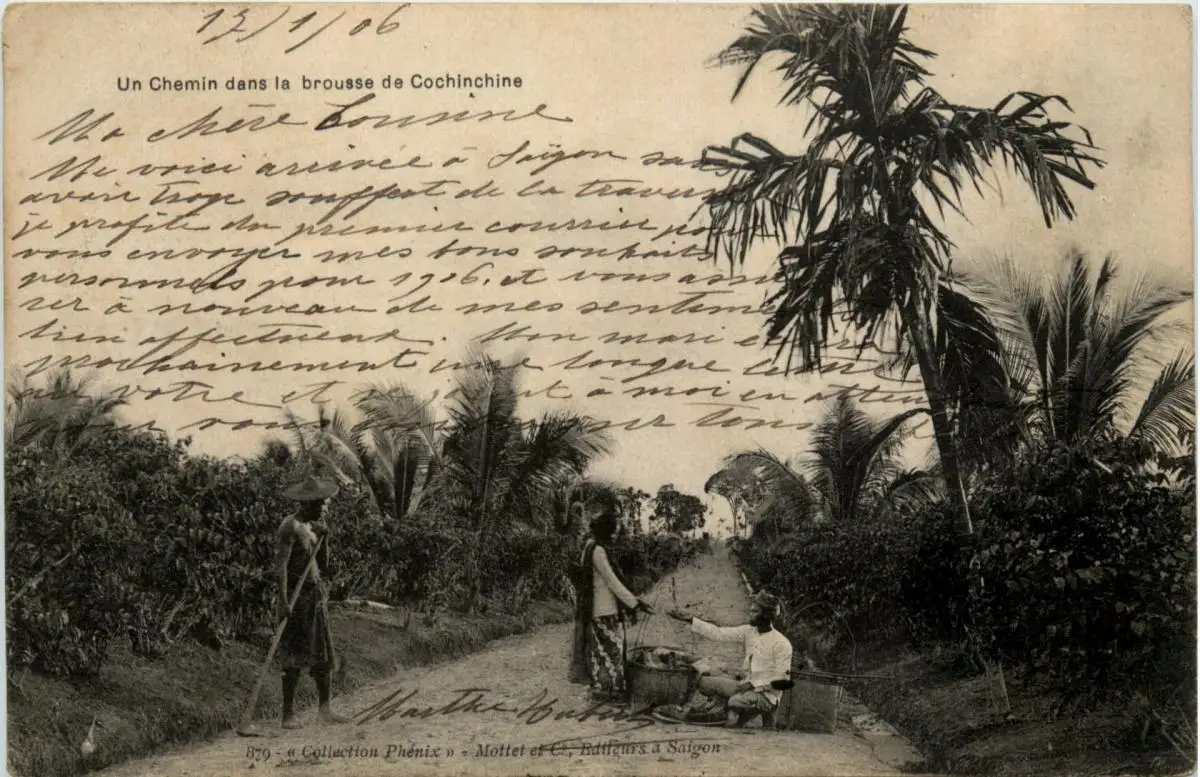 13/1/06
Un Chemin dans la brousse de Cochinchine
Ma chère Cousine
Me voici arrivée à Saïgon sans
avoir trop souffert de la traversée
je profite du premier courrier pour
vous envoyer mes bons souhaits
personnels pour 1906. et vous assu
rer à nouveau de mes sentiments
bien affectueux. Mon mari
prochainement une longue lettre
votre et à moi en atten
vous tous
Marthe
879 - « Collection Phénix » - Mottet et Cie, Editeurs à Saigon